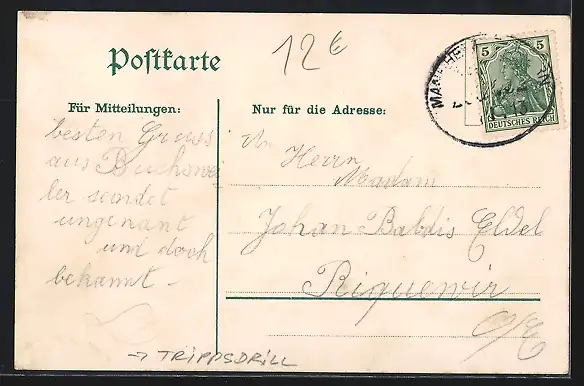 Postkarte
12 €
5 5
DEUTSCHES REICH
Für Mitteilungen:
besten Gruss
aus Buchswei
ler sendet
ungenant
und doch
bekannt -
Nur für die Adresse:
Herrn
Madam
Johan Baldis Eldel
Riquewir
O/E
→ TRIPPSDRILL